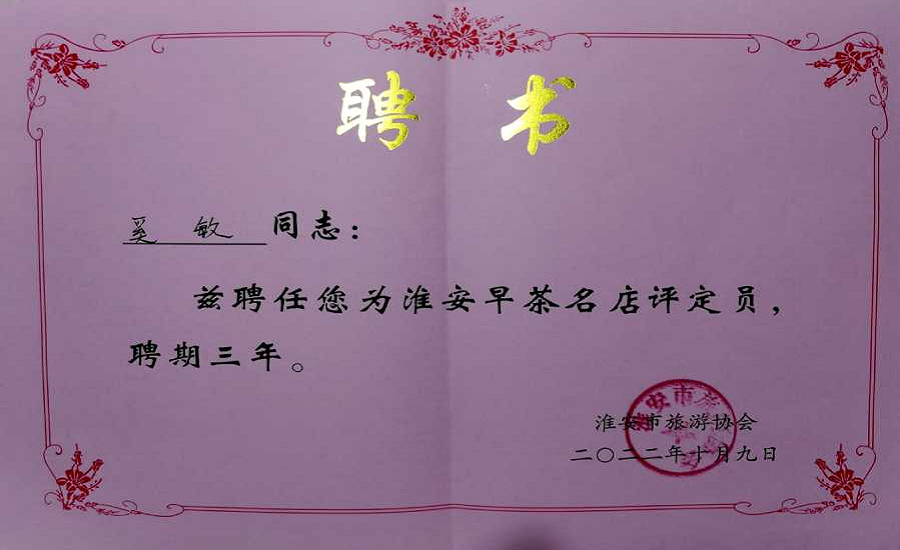 聘书
奚敏同志：
兹聘任您为淮安早茶名店评定员，
聘期三年。
淮安市旅游协会
二〇二二年十月九日